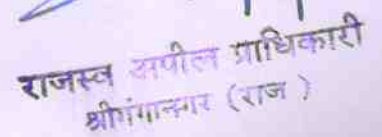 राजस्व अपील प्राधिकारी
श्रीगंगानगर (राज)